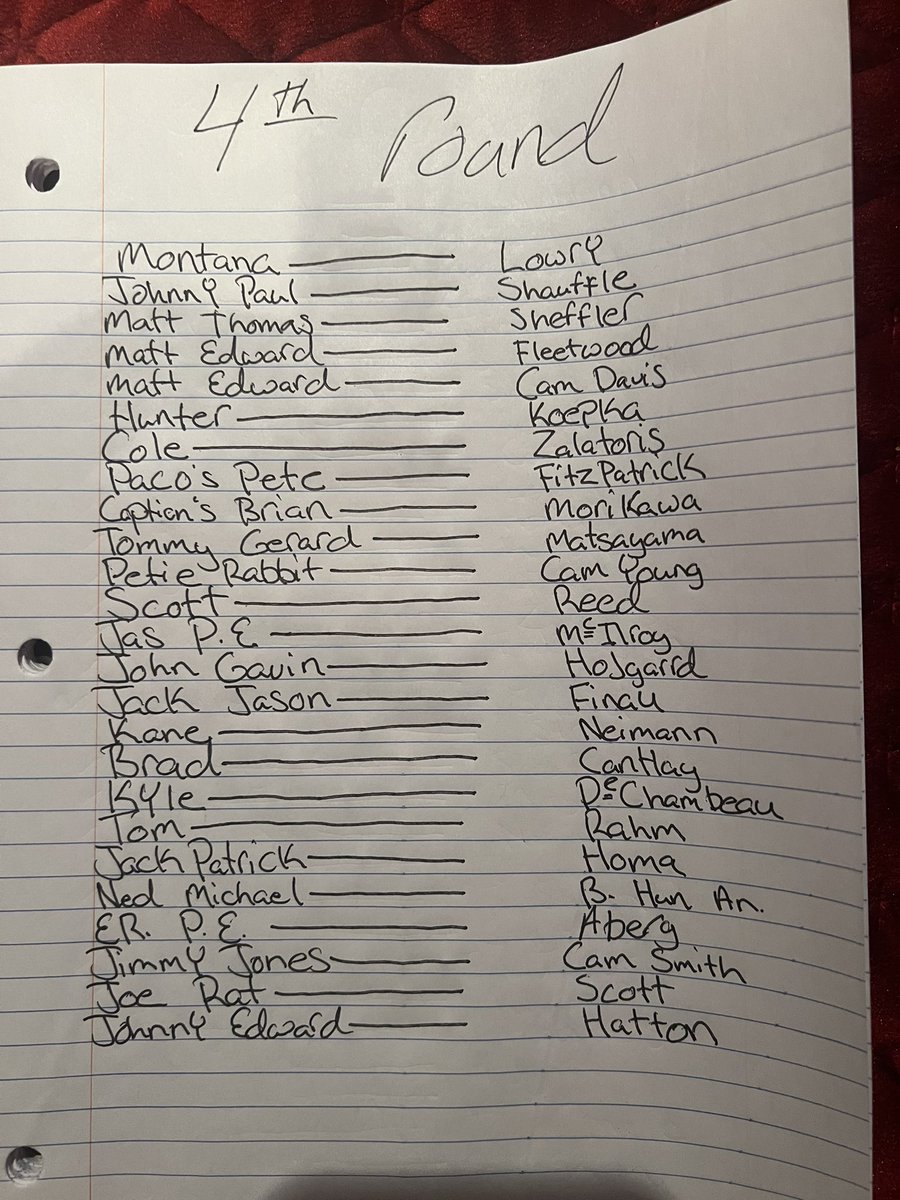 4th round
Montana — Lowry
Johnny Paul — Shauffle
Matt Thomas — Sheffler
Matt Edward — Fleetwood
Matt Edward — Cam Davis
Hunter — Koepka
Cole — Zalatoris
Paco's Pete — FitzPatrick
Caption's Brian — Morikawa
Tommy Gerard — Matsayama
Petie Rabbit — Cam Young
Scott — Reed
Jas P.E — McIlroy
John Gavin — Hojgarrd
Jack Jason — Finau
Kane — Neimann
Brad — Cantlay
Kyle — DeChambeau
Tom — Rahm
Jack Patrick — Homa
Ned Michael — B. Hun An.
ER. P.E. — Aberg
Jimmy Jones — Cam Smith
Joe Rat — Scott
Johnny Edward — Hatton